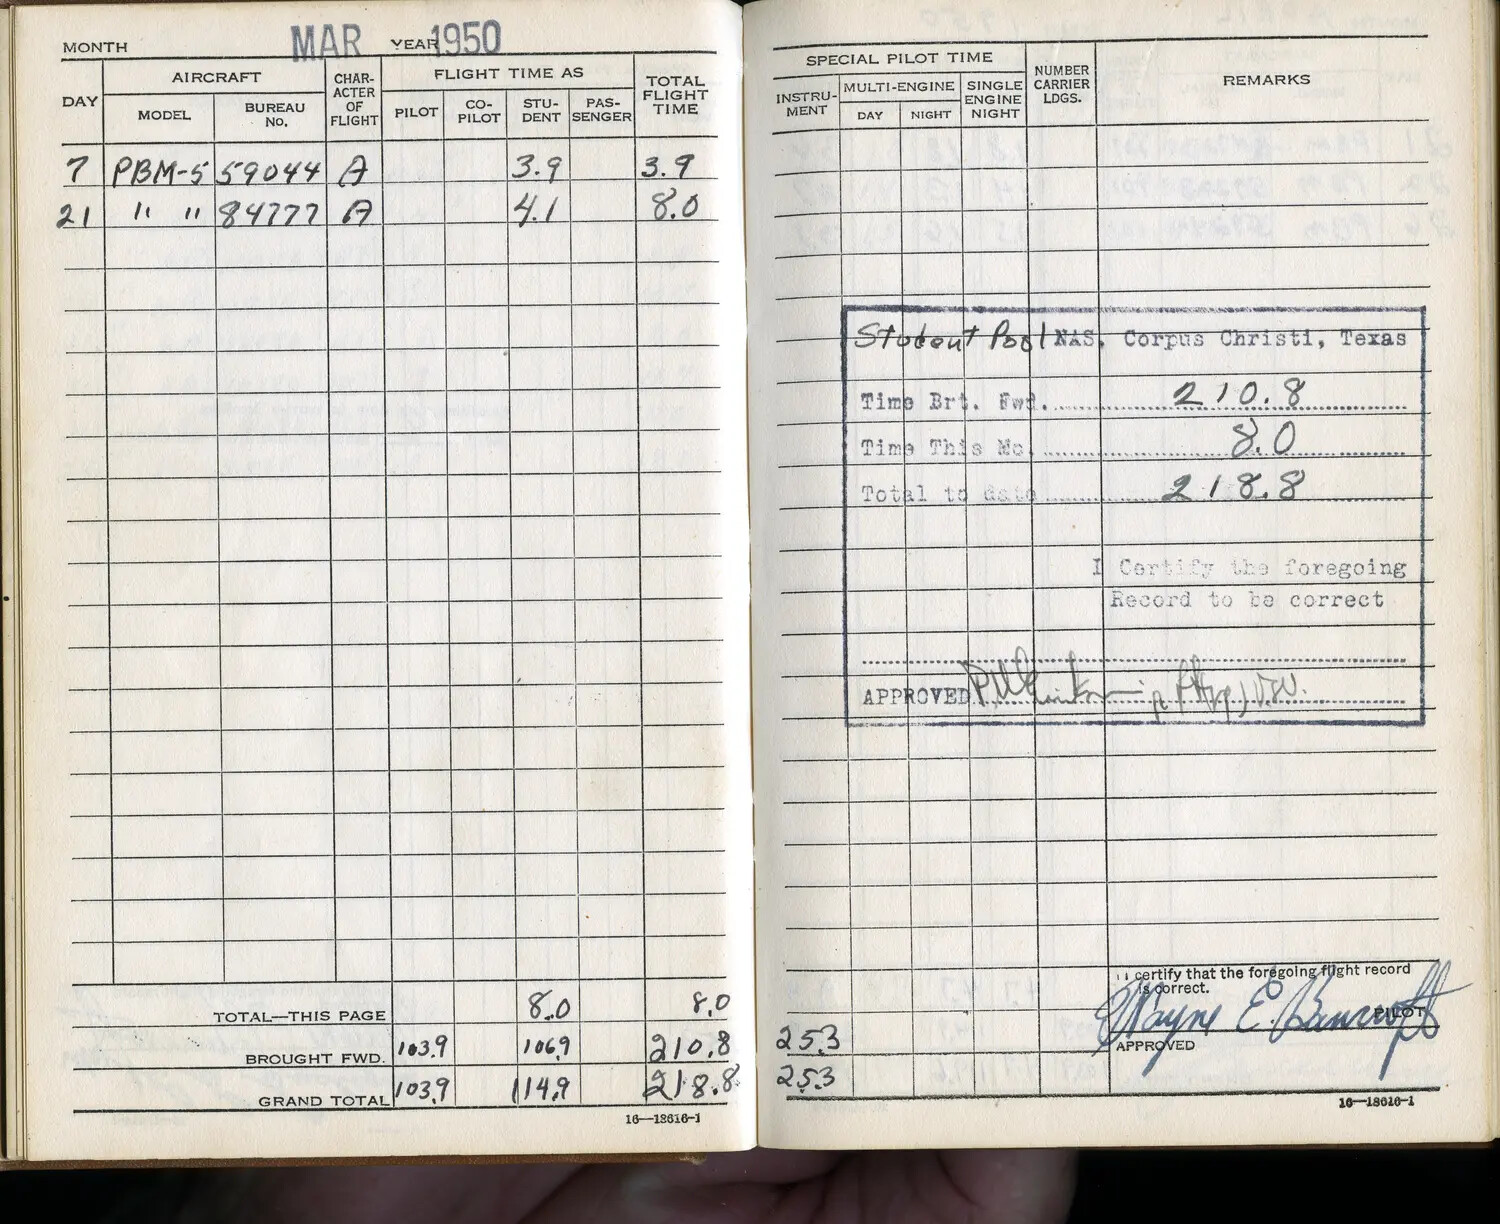 MONTH MAR YEAR 1950
DAY
AIRCRAFT
MODEL
BUREAU No.
CHAR-
ACTER
OF
FLIGHT
FLIGHT TIME AS
PILOT
CO-
PILOT
STU-
DENT
PAS-
SENGER
TOTAL
FLIGHT
TIME
7 PBM-5 59044 A 3.9 3.9
21 " " 84777 A 4.1 8.0
TOTAL—THIS PAGE 8.0 8.0
BROUGHT FWD. 103.9 106.9 210.8
GRAND TOTAL 103.9 114.9 218.8
16—13616-1
SPECIAL PILOT TIME
INSTRU-
MENT
MULTI-ENGINE
DAY
NIGHT
SINGLE
ENGINE
NIGHT
NUMBER
CARRIER
LDGS.
REMARKS
Student Pool NAS. Corpus Christi, Texas
Time Brt. Fwd. 210.8
Time This Mo. 8.0
Total to date 218.8
I Certify the foregoing
Record to be correct
APPROVED
I certify that the foregoing flight record
is correct.
Wayne E. Bancroft PILOT
25.3
APPROVED
25.3
16—13616-1